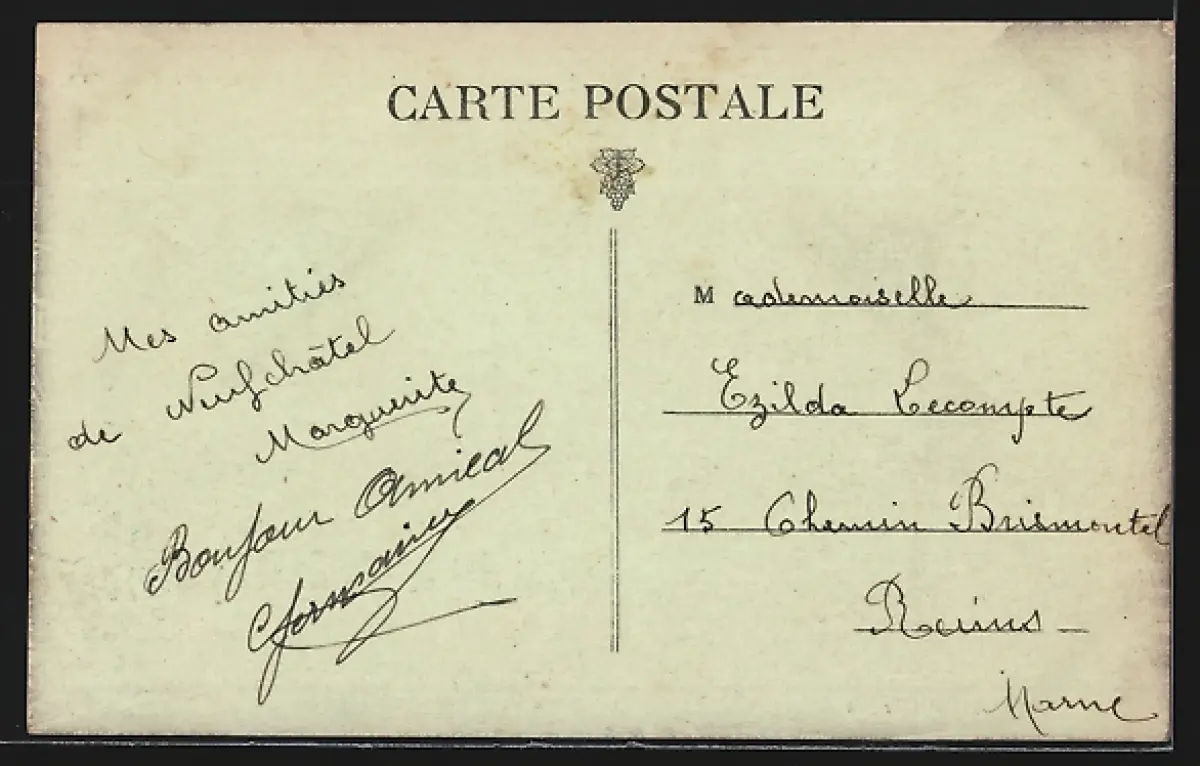 CARTE POSTALE
Mes amitiés
de Neufchâtel
Marguerite
Bonjour Amical
Mademoiselle
Ezilda Lecompte
15 Chemin Brismontel
Reims
Marne